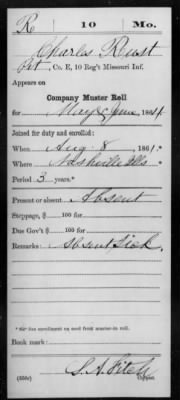 R | 10 | Mo.
Charles Rust
Pvt, Co. E, 10 Reg't Missouri Inf.
Appears on
Company Muster Roll
for May & June, 1864.
Joined for duty and enrolled:
When Aug 8, 1861.*
Where Nashville Ills
Period 3 years.*
Present or absent Absent
Stoppage, $ 100 for
Due Gov't $ 100 for
Remarks: Absent Sick.
Book mark:
S. A. Fitch
(358c) Copyist.